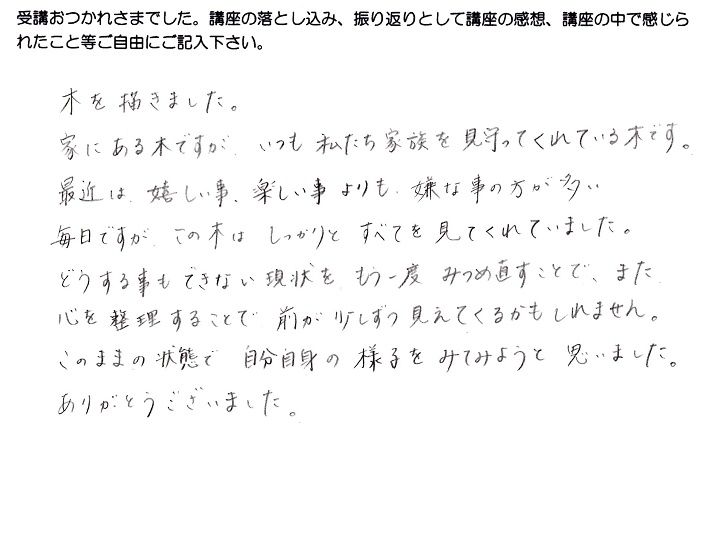 受講おつかれさまでした。講座の落とし込み、振り返りとして講座の感想、講座の中で感じら
れたこと等ご自由にご記入下さい。
木を描きました。
家にある木ですが、いつも私たち家族を見守ってくれている木です。
最近は、嬉しい事、楽しい事よりも、嫌な事の方が多い
毎日ですが、この木はしっかりとすべてを見てくれていました。
どうする事もできない現状を、もう一度みつめ直すことで、また
心を整理することで、前が少しずつ見えてくるかもしれません。
このままの状態で自分自身の様子をみてみようと思いました。
ありがとうございました。